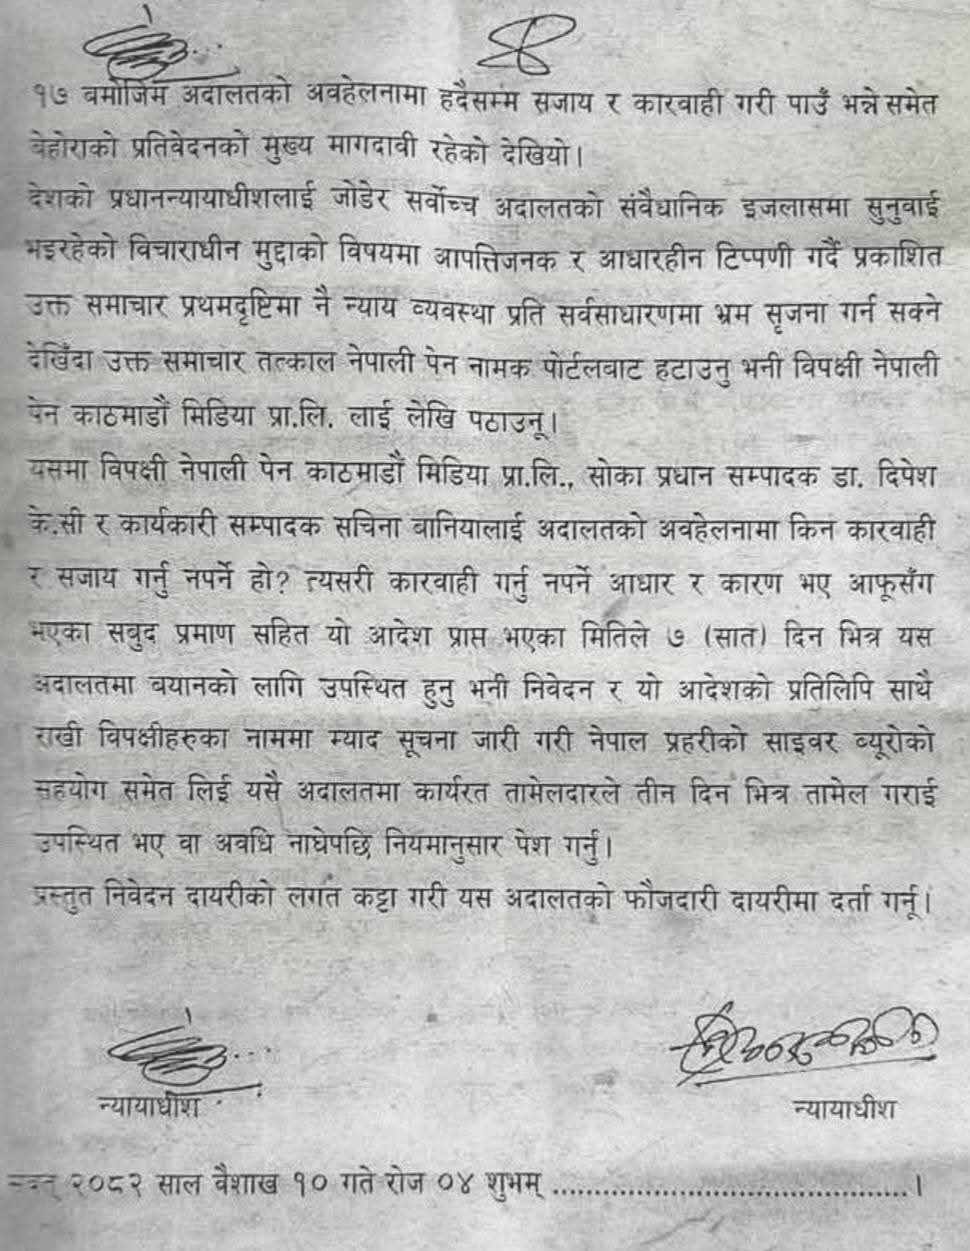 १७ बमोजिम अदालतको अवहेलनामा हदैसम्म सजाय र कारवाही गरी पाउँ भन्ने समेत
बेहोराको प्रतिवेदनको मुख्य मागदावी रहेको देखियो।
देशको प्रधानन्यायाधीशलाई जोडेर सर्वोच्च अदालतको संवैधानिक इजलासमा सुनुवाई
भइरहेको विचाराधीन मुद्दाको विषयमा आपत्तिजनक र आधारहीन टिप्पणी गर्दै प्रकाशित
उक्त समाचार प्रथमदृष्टिमा नै न्याय व्यवस्था प्रति सर्वसाधारणमा भ्रम सृजना गर्न सक्ने
देखिँदा उक्त समाचार तत्काल नेपाली पेन नामक पोर्टलबाट हटाउनु भनी विपक्षी नेपाली
पेन काठमाडौं मिडिया प्रा.लि. लाई लेखि पठाउनू।
यसमा विपक्षी नेपाली पेन काठमाडौं मिडिया प्रा.लि., सोका प्रधान सम्पादक डा. दिपेश
के.सी र कार्यकारी सम्पादक सचिना बानियालाई अदालतको अवहेलनामा किन कारवाही
र सजाय गर्नु नपर्ने हो? त्यसरी कारवाही गर्नु नपर्ने आधार र कारण भए आफूसँग
भएका सबुद प्रमाण सहित यो आदेश प्राप्त भएका मितिले ७ (सात) दिन भित्र यस
अदालतमा बयानको लागि उपस्थित हुनु भनी निवेदन र यो आदेशको प्रतिलिपि साथै
राखी विपक्षीहरुका नाममा म्याद सूचना जारी गरी नेपाल प्रहरीको साइवर ब्यूरोको
सहयोग समेत लिई यसै अदालतमा कार्यरत तामेलदारले तीन दिन भित्र तामेल गराई
उपस्थित भए वा अवधि नाघेपछि नियमानुसार पेश गर्नु।
प्रस्तुत निवेदन दायरीको लगत कट्टा गरी यस अदालतको फौजदारी दायरीमा दर्ता गर्नू।
न्यायाधीश
न्यायाधीश
२०८२ साल वैशाख १० गते रोज ०४ शुभम् .......................................।